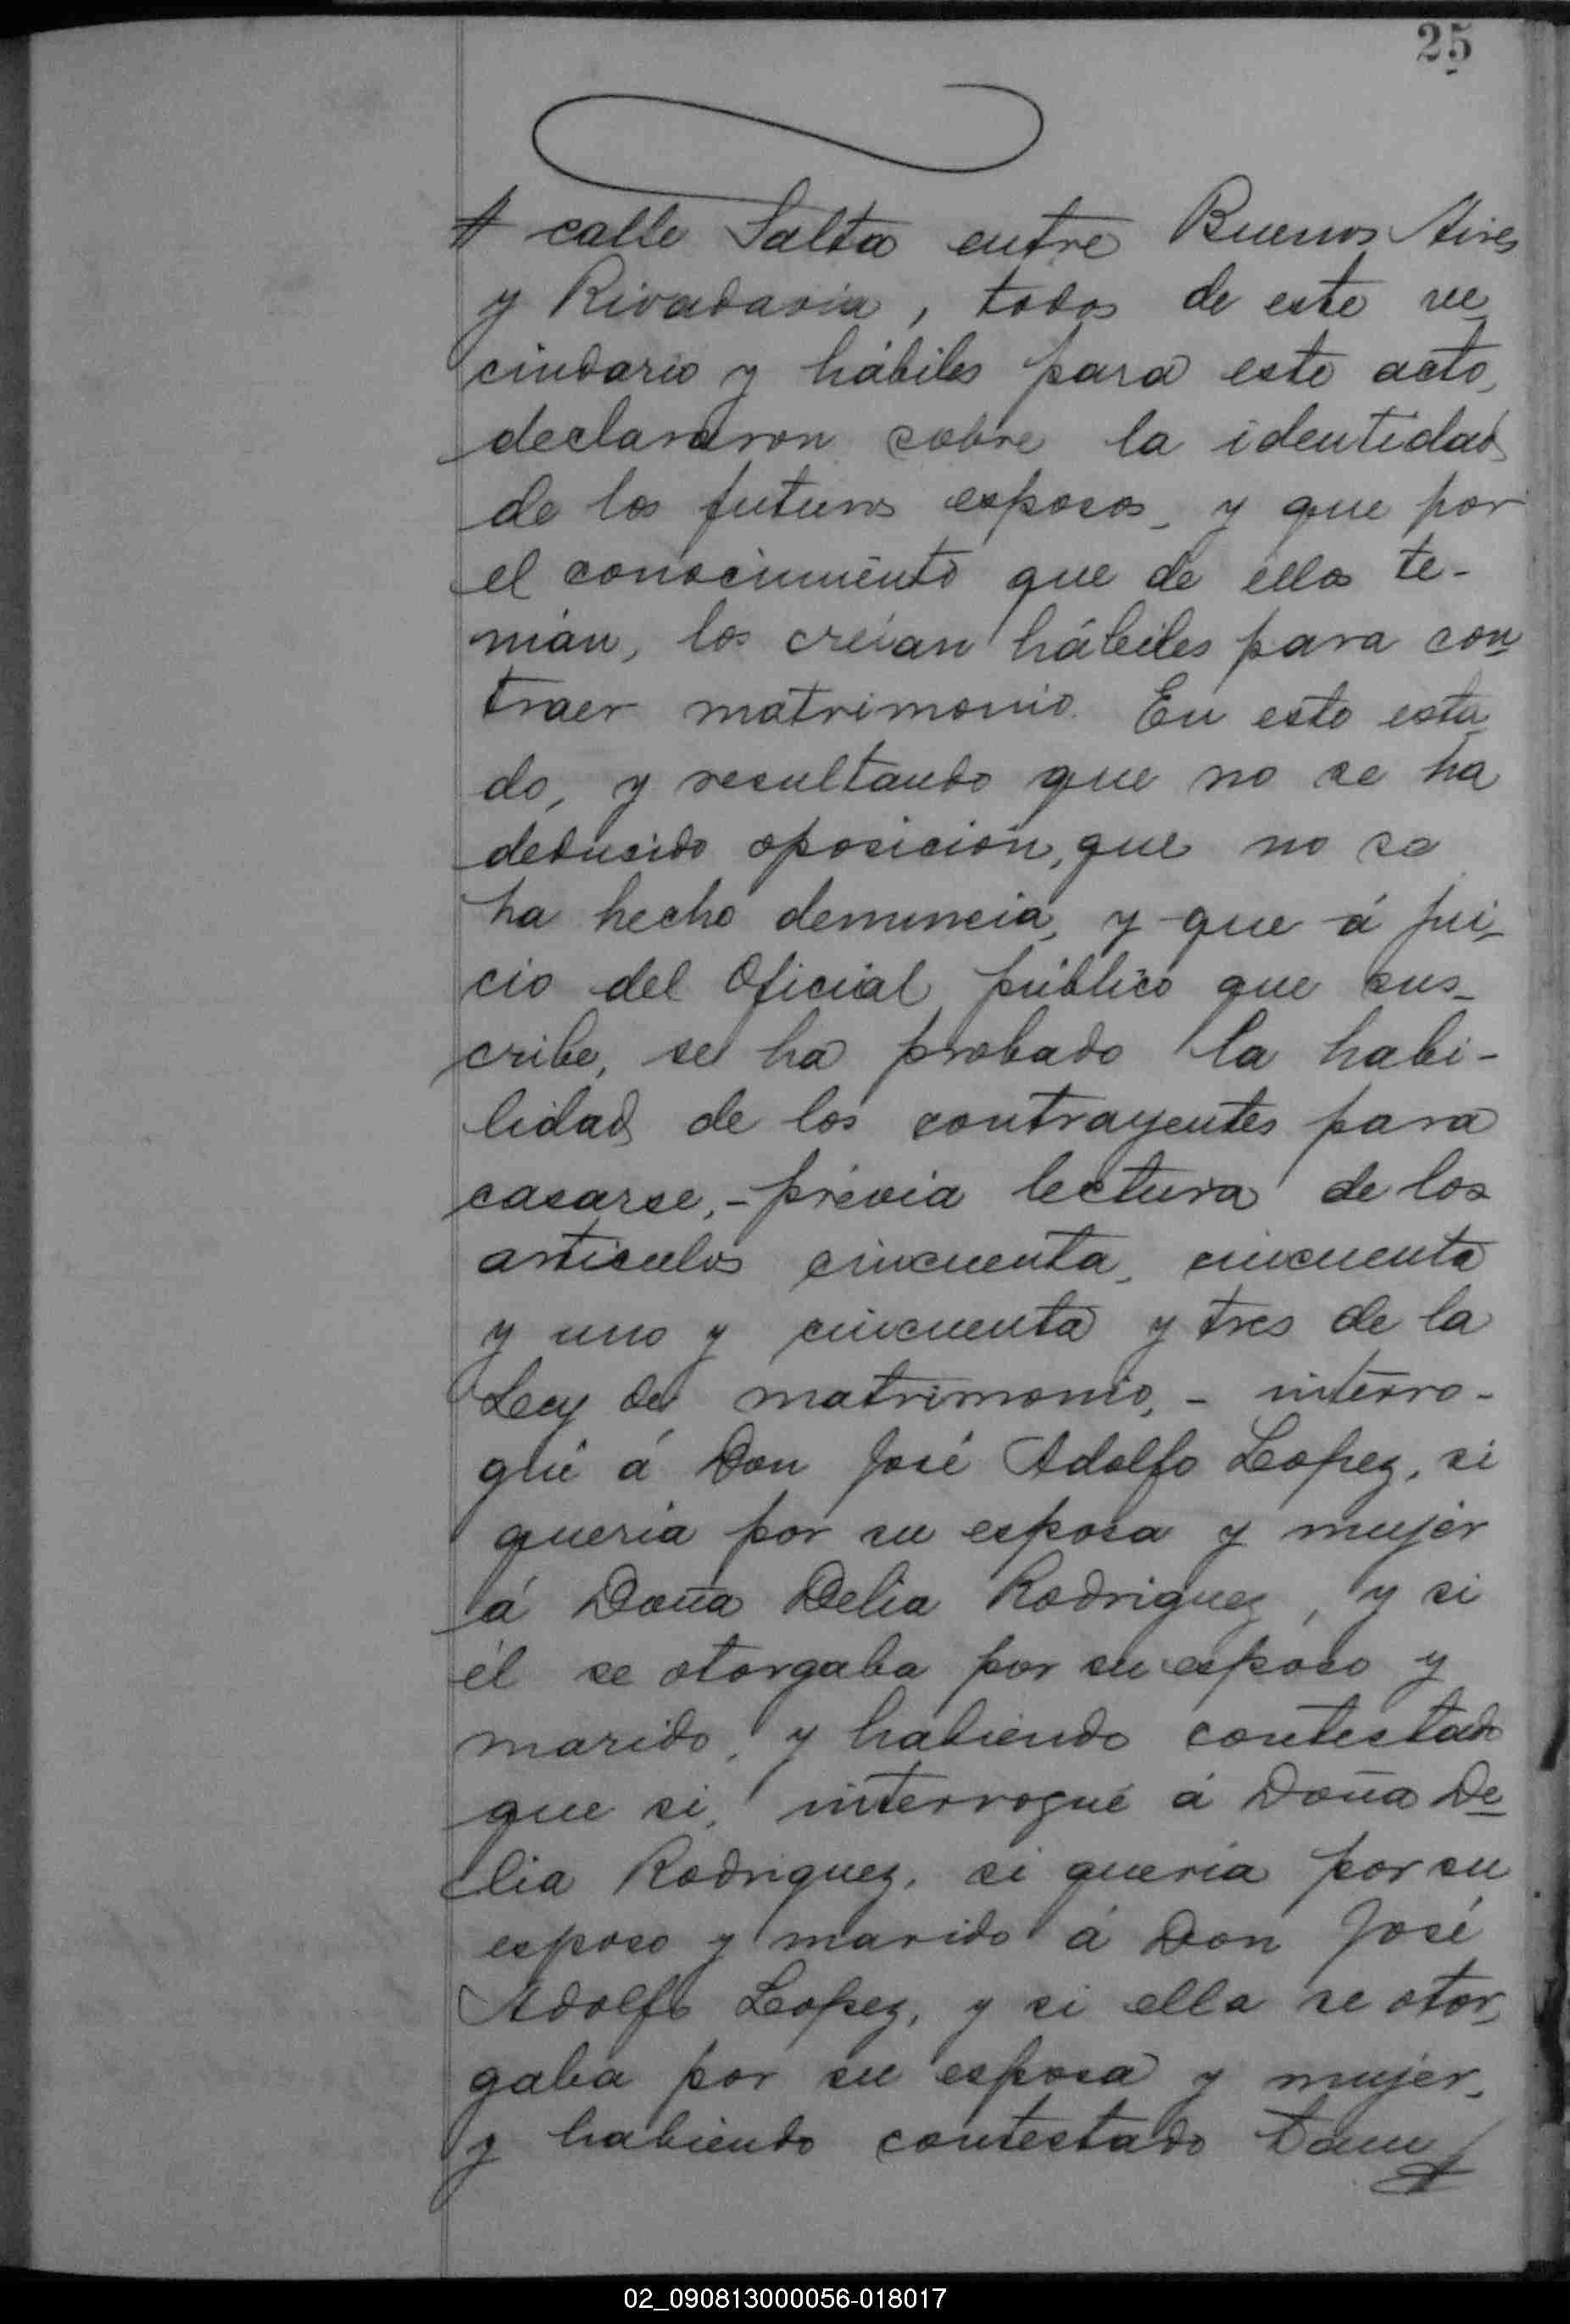 25
calle Salta entre Buenos Aires
y Rivadavia, todos de este ve_
cindario y hábiles para este acto,
declararon sobre la identidad
de los futuros esposos, y que por
el conocimiento que de ellos te-
nian, los creían hábiles para con_
traer matrimonio. En este esta_
do, y resultando que no se ha
deducido oposicion, que no se
ha hecho denuncia, y que á jui_
cio del Oficial público que sus_
cribe, se ha probado la habi-
lidad de los contrayentes para
casarse, - prévia lectura de los
articulos cincuenta, cincuenta
y uno y cincuenta y tres de la
Ley de matrimonio, - interro-
gué á Don José Adolfo Lopez, si
queria por su esposa y mujer
á Doña Delia Rodriguez, y si
él se otorgaba por su esposo y
marido, y habiendo contestado
que si, interrogué á Doña De_
lia Rodriguez, si queria por su
esposo y marido á Don José
Adolfo Lopez, y si ella se otor_
gaba por su esposa y mujer,
y habiendo contestado tam
02_090813000056-018017